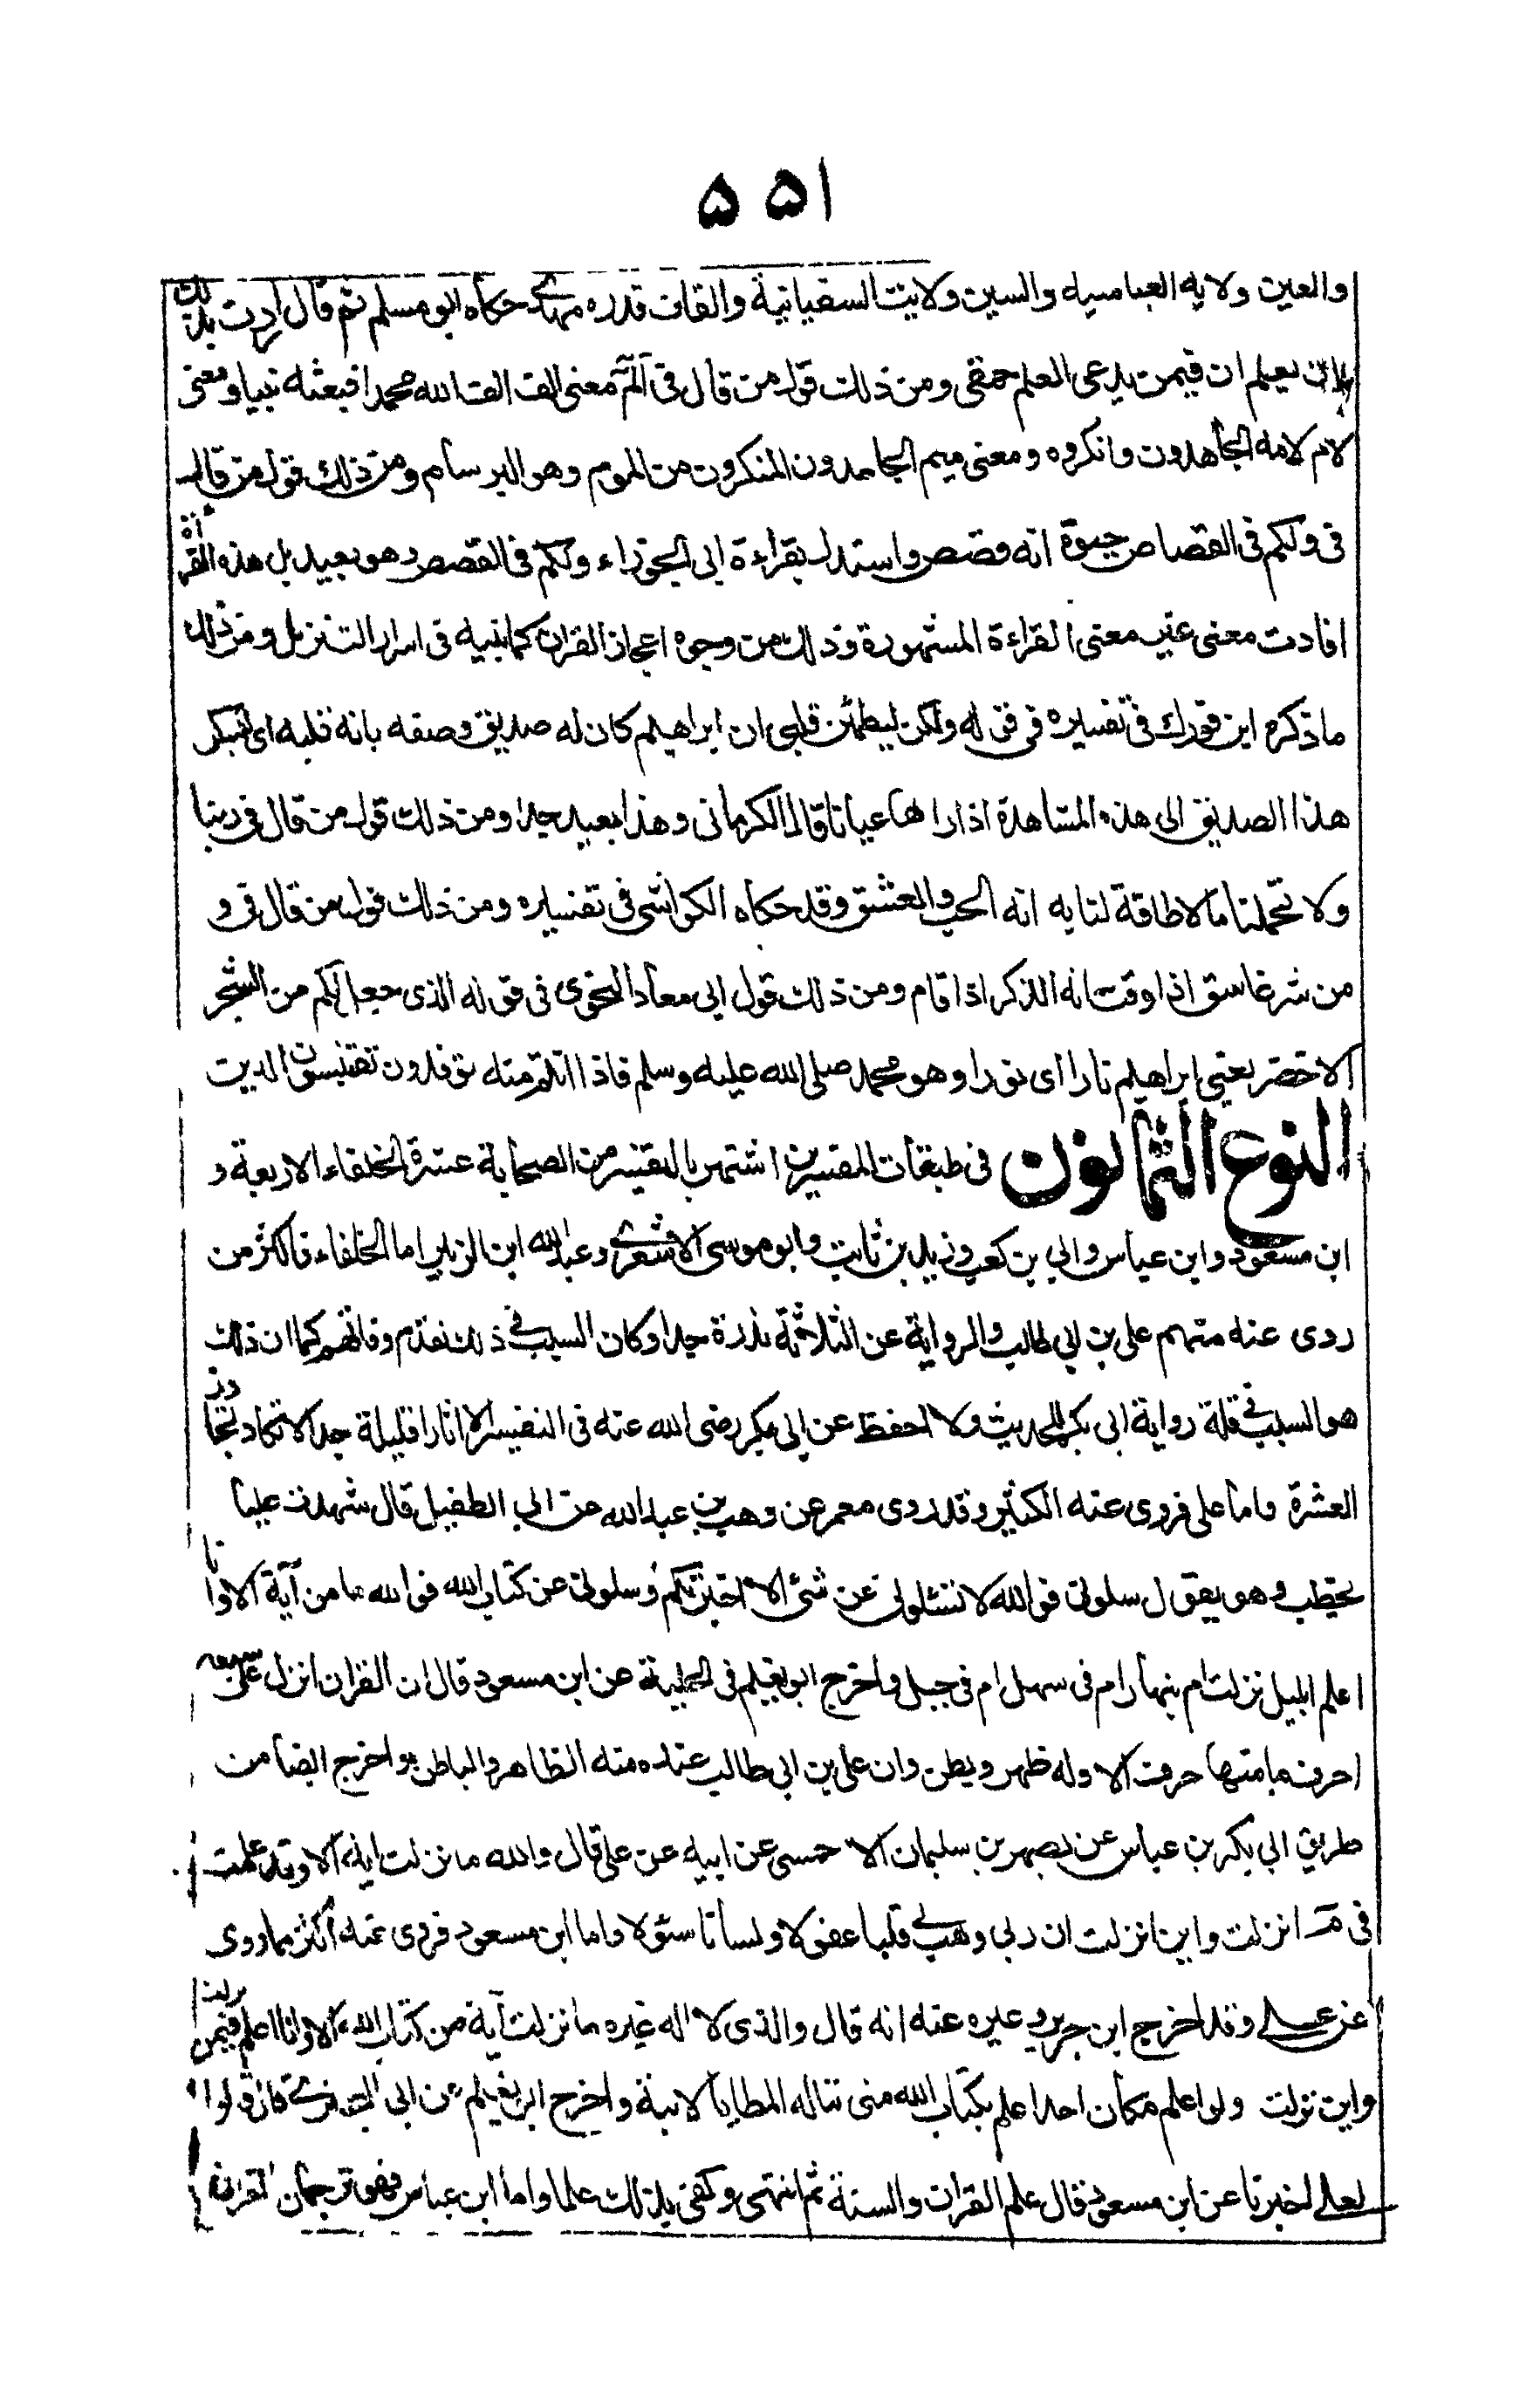 ٥٥١
والعين ولاية العباسيه والسين ولايت السفيانية والقاف قدره مهدى حكاه ابو مسلم ثم قال اردت بذلك
ان يعلم ان فيمن يدعى العلم حمقى ومن ذلك قول من قال فى الٓمٓ معنى الف الف الله محمدا فبعثه نبيا ومعنى
لام لامه الجاهدون وانكروه ومعنى ميم الجاحدون المنكرون من الموم وهو البرسام ومن ذلك قول من قال
فى ولكم فى القصاص حيوة انه قصص واستدل بقراءة ابى الجوزاء ولكم فى القصص وهو بعيد بل هذه القراة
افادت معنى غير معنى القراءة المشهورة وذلك من وجوه اعجاز القران كما بنيه فى اسرار التنزيل ومن ذلك
ما ذكره ابن فورك فى تفسيره فى قوله ولكن ليطمئن قلبى ان ابراهيم كان له صديق وصفه بانه قلبه اى ليسكن
هذا الصديق الى هذه المشاهدة اذا راها عيانا قال الكرمانى وهذا بعيد جدا ومن ذلك قول من قال فى ربنا
ولا تحملنا ما لا طاقة لنا به انه الحب والعشق وقد حكاه الكواشى فى تفسيره ومن ذلك قول من قال فى و
من شر غاسق اذا وقب انه الذكر اذا قام ومن ذلك قول ابى معاذ النحوى فى قوله الذى جعل لكم من الشجر
الاخضر يعنى ابراهيم نارا اى نورا وهو محمد صلى الله عليه وسلم فاذا انتم منه توقدون تقتبسون الدين
النوع الثمانون فى طبقات المفسرين اشتهر بالتفسير من الصحابة عشرة الخلفاء الاربعة و
ابن مسعود وابن عباس وابي بن كعب وزيد بن ثابت وابو موسى الاشعرى وعبد الله ابن الزبير اما الخلفاء فاكثر من
روى عنه منهم على بن ابي طالب والرواية عن الثلاثة نذرة جدا وكان السبب فى ذلك تقدم وفاتهم كما ان ذلك
هو السبب فى قلة رواية ابى بكر للحديث ولا احفظ عن ابى بكر رضى الله عنه فى التفسير الا اثارا قليلة جدا لا تكاد تجاوز
العشرة واما على فروى عنه الكثير وقد روى معمر عن وهب بن عبد الله عن ابى الطفيل قال شهدت عليا
يخطب وهو يقول سلونى فوالله لا تسئلونى عن شئ الا اخبرتكم وسلونى عن كتاب الله فوالله ما من آية الا وانا
اعلم ابليل نزلت ام بنهار ام فى سهل ام فى جبل واخرج ابو نعيم فى الحلية عن ابن مسعود قال ان القران انزل على سبعة
احرف ما منها حرف الا وله ظهر وبطن وان على بن ابى طالب عنده منه الظاهر والباطن واخرج ايضا من
طريق ابى بكر بن عباس عن نصير بن سليمان الاحمسى عن ابيه عن على قال والله ما نزلت اية الا وقد علمت
فى م انزلت واين انزلت ان ربى وهب لى قلبا عقولا ولسانا سئولا واما ابن مسعود فروى عنه اكثر مما روى
عن على وقد اخرج ابن جرير وغيره عنه انه قال والذى لا اله غيره ما نزلت آية من كتاب الله الا وانا اعلم فيمن نزلت
واين نزلت ولو اعلم مكان احد اعلم بكتاب الله منى تناله المطايا لاتيته واخرج ابو نعيم عن ابى البخترى قال قالوا
لعلى اخبرنا عن ابن مسعود قال علم القران والسنة ثم انتهى وكفى بذلك علما واما ابن عباس فهو ترجمان القران